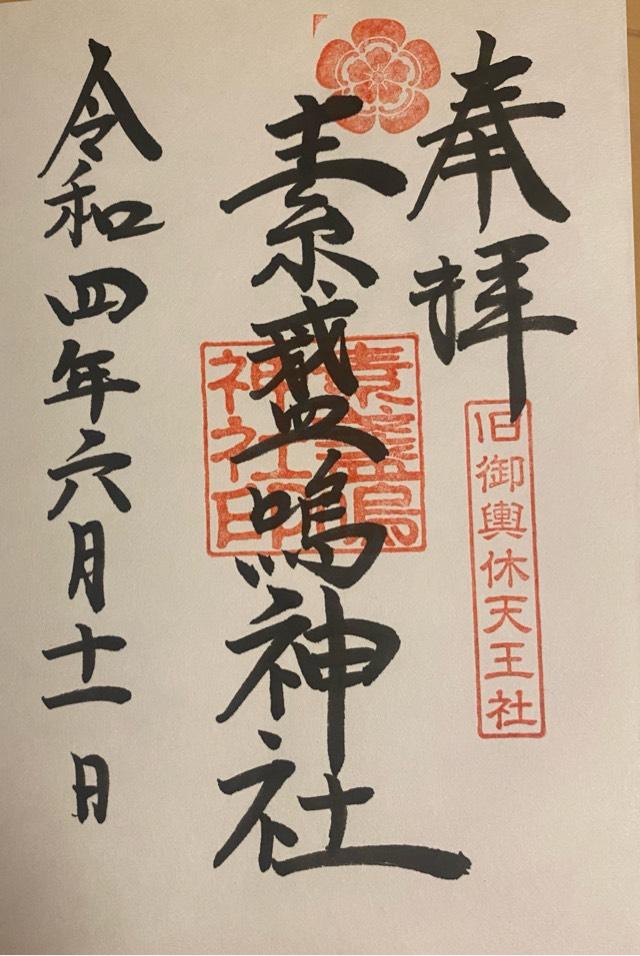 奉拝
旧御輿休天王社
素盛鳴神社
素盞鳴
神社印
令和四年六月十一日